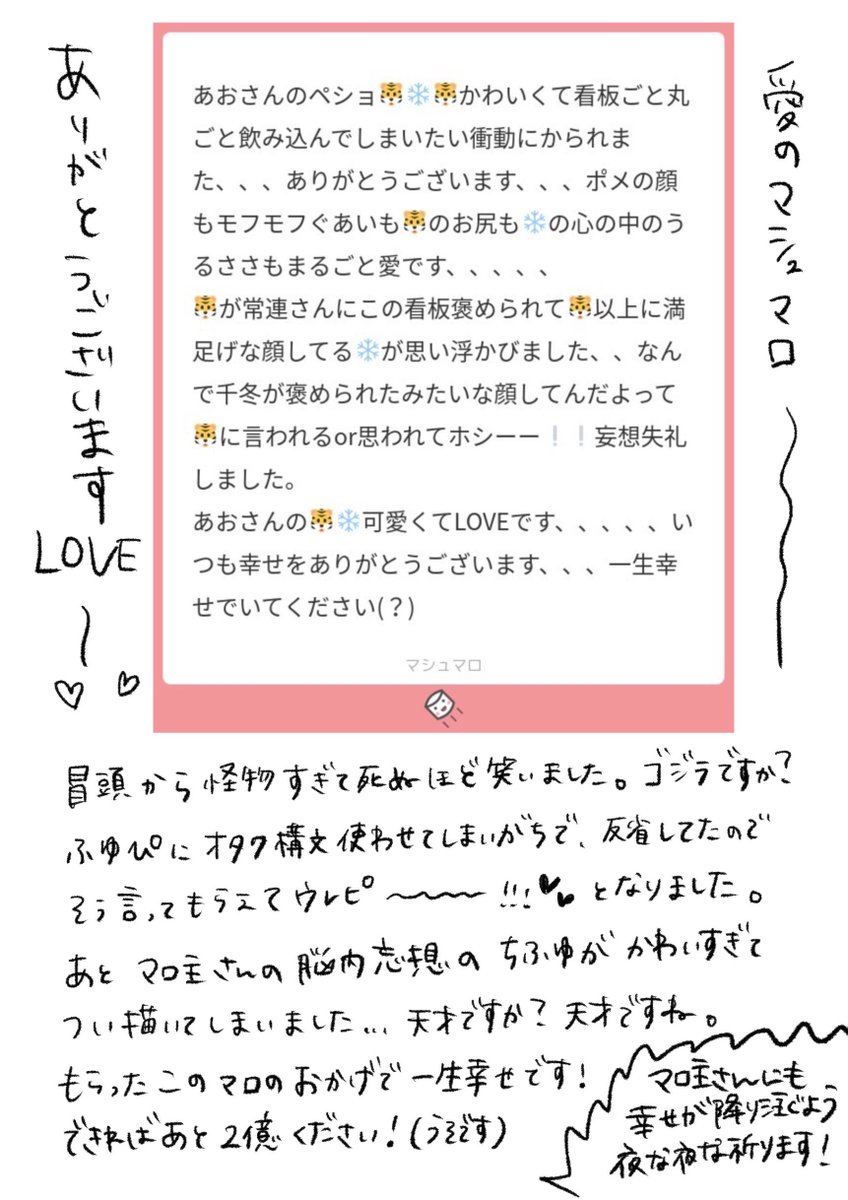 愛のマシュマロ
ありがとうございます
LOVE
あおさんのペショ🐯❄️🐯かわいくて看板ごと丸
ごと飲み込んでしまいたい衝動にかられま
た、、、ありがとうございます、、、ポメの顔
もモフモフぐあいも🐯のお尻も❄️の心の中のう
るささもまるごと愛です、、、、、
🐯が常連さんにこの看板褒められて🐯以上に満
足げな顔してる❄️が思い浮かびました、、なん
で千冬が褒められたみたいな顔してんだよって
🐯に言われるor思われてホシーー❕❕妄想失礼
しました。
あおさんの🐯❄️可愛くてLOVEです、、、、、い
つも幸せをありがとうございます、、、一生幸
せでいてください(？)
マシュマロ
冒頭から怪物すぎて死ぬほど笑いました。ゴジラですか?
ふゆぴにオタク構文使わせてしまいがちで、反省してたので
そう言ってもらえてウレピ〜〜〜!!!♥♥となりました。
あとマロ主さんの脳内妄想のちふゆがかわいすぎて
つい描いてしまいました... 天才ですか?天才ですね。
もらったこのマロのおかげで一生幸せです!
できればあと2億ください!(うそです)
マロ主さんにも
幸せが降り注ぐよう
夜な夜な祈ります!